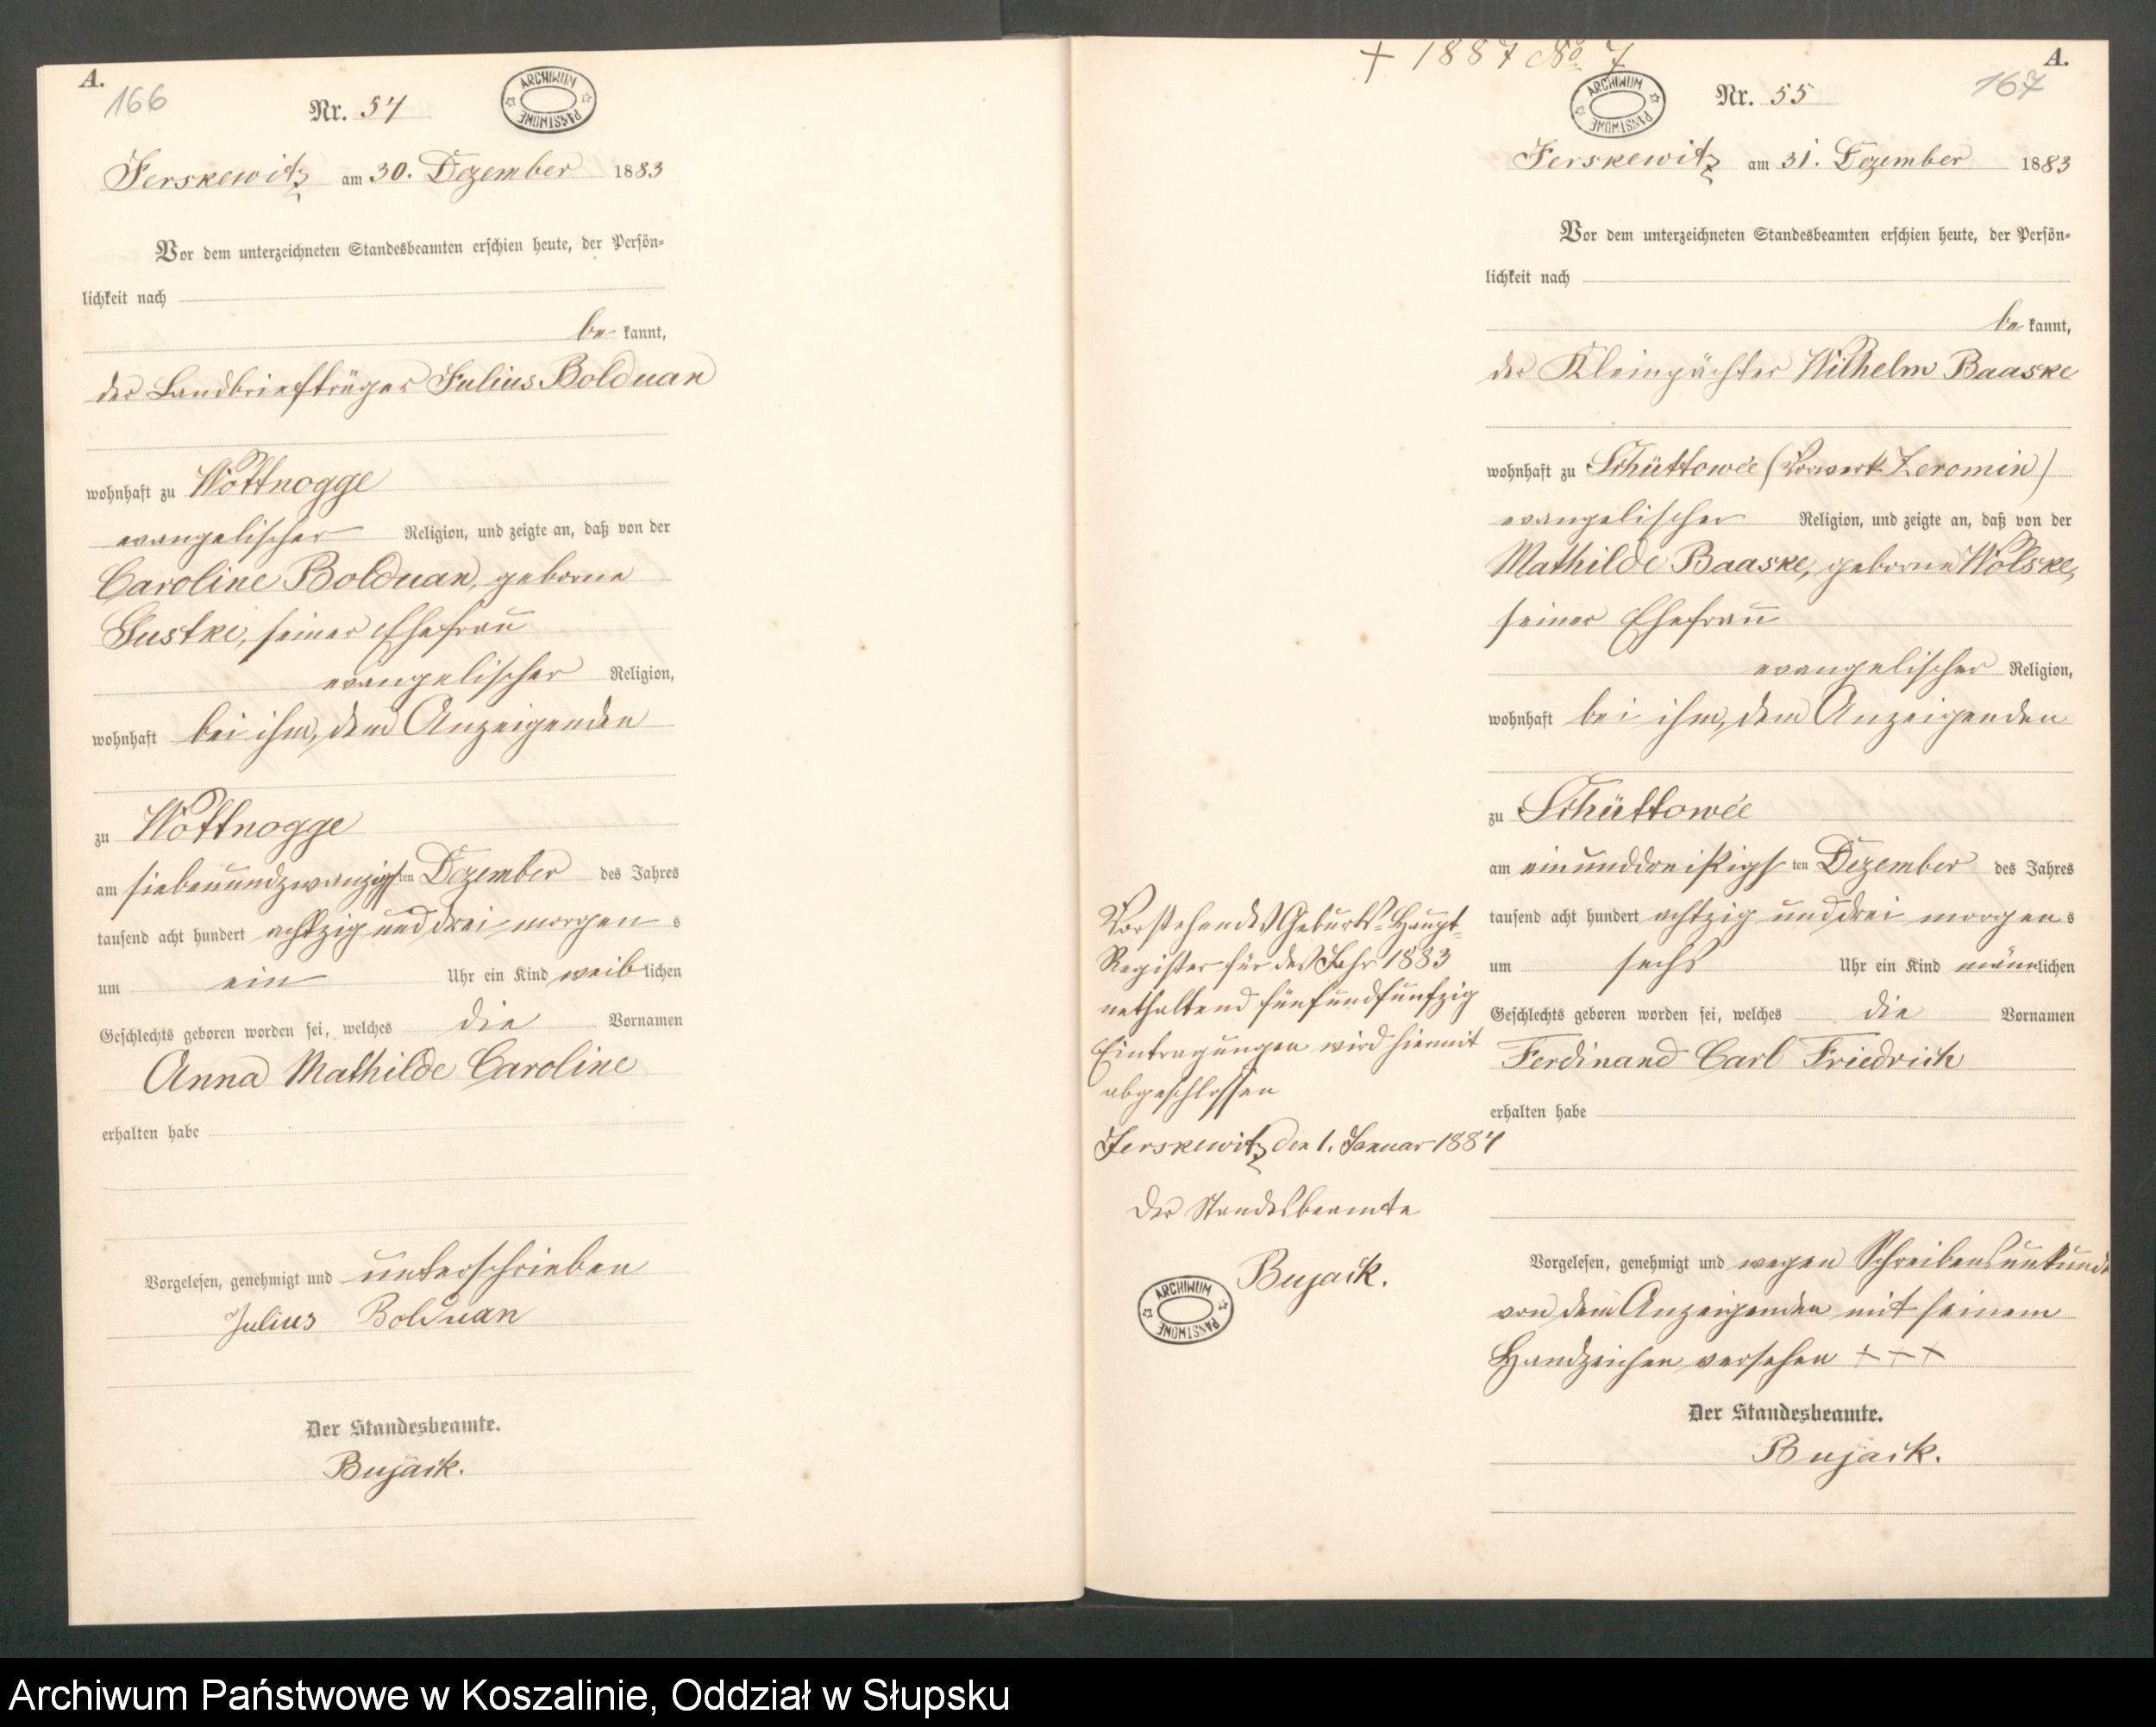 A.
166
Nr. 54
ARCHIWUM PAŃSTWOWE
Jerskewitz am 30. Dezember 1883
Vor dem unterzeichneten Standesbeamten erschien heute, der Persön-
lichkeit nach
be kannt,
der Landbriefträger Julius Bolduan
wohnhaft zu Wottnogge
evangelischer Religion, und zeigte an, daß von der
Caroline Bolduan, geborne
Gustke, seiner Ehefrau
evangelischer Religion,
wohnhaft bei ihm, dem Anzeigenden
zu Wottnogge
am siebenundzwanzigsten Dezember des Jahres
tausend acht hundert achtzig und drei morgen s
um ein Uhr ein Kind weiblichen
Geschlechts geboren worden sei, welches die Vornamen
Anna Mathilde Caroline
erhalten habe
Vorgelesen, genehmigt und unterschrieben
Julius Bolduan
Der Standesbeamte.
Bujack.
+ 1887 No 7
A.
167
ARCHIWUM PAŃSTWOWE
Nr. 55
Jerskewitz am 31. Dezember 1883
Vor dem unterzeichneten Standesbeamten erschien heute, der Persön-
lichkeit nach
be kannt,
der Kleinpächter Wilhelm Baaske
wohnhaft zu Schüttowée (Vorwerk Zeromin)
evangelischer Religion, und zeigte an, daß von der
Mathilde Baaske, geborne Wolske,
seiner Ehefrau
evangelischer Religion,
wohnhaft bei ihm, dem Anzeigenden
zu Schüttowée
am einunddreißigsten Dezember des Jahres
tausend acht hundert achtzig und drei morgen s
um sechs Uhr ein Kind männlichen
Geschlechts geboren worden sei, welches die Vornamen
Ferdinand Carl Friedrich
erhalten habe
Vorgelesen, genehmigt und wegen Schreibensunkunde
von dem Anzeigenden mit seinem
Handzeichen versehen +++
Der Standesbeamte.
Bujack.
Vorstehendes Geburts-Haupt-
Register für das Jahr 1883
enthaltend fünfundfünfzig
Eintragungen wird hiermit
abgeschlossen
Jerskewitz den 1. Januar 1884
Der Standesbeamte
Bujack.
ARCHIWUM PAŃSTWOWE
Archiwum Państwowe w Koszalinie, Oddział w Słupsku